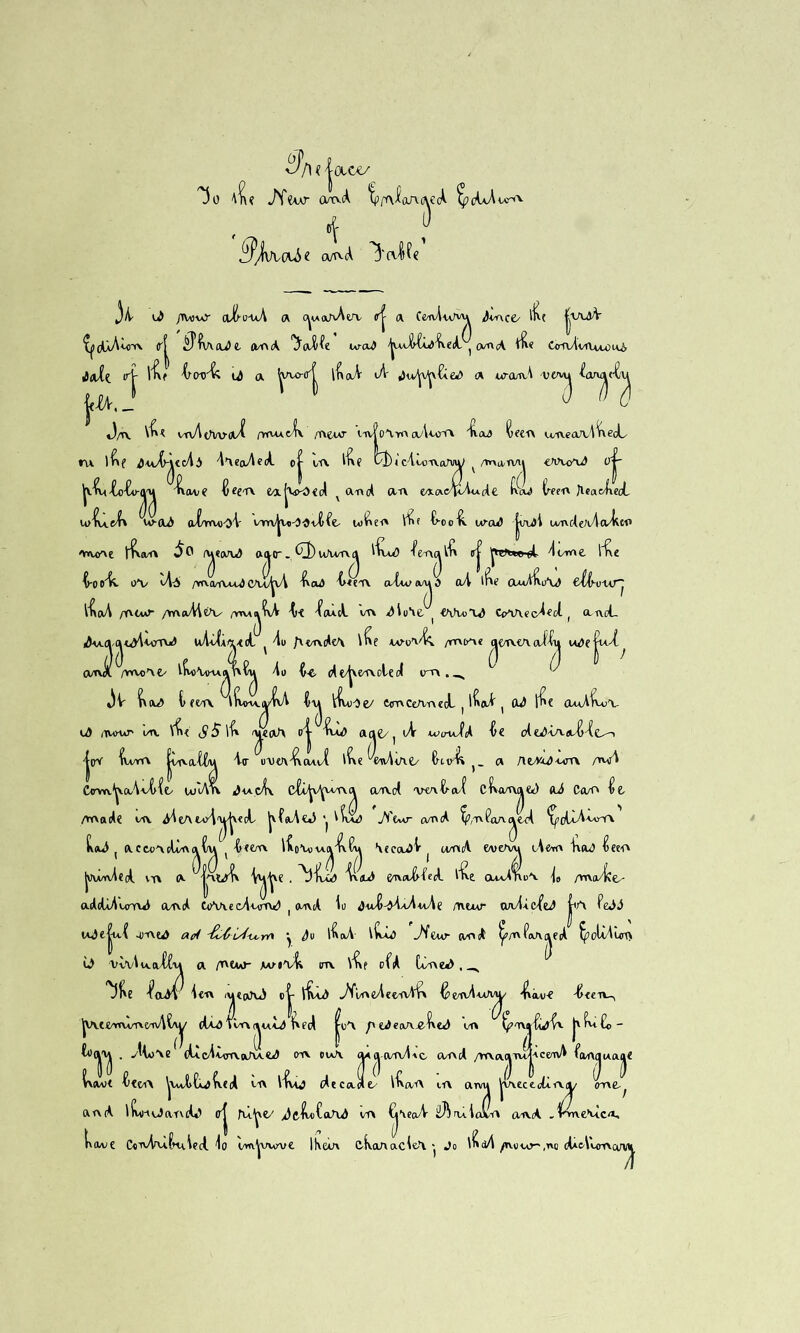 Preface
To the New and Enlarged Edition
of
'Phrase and Fable'
It is now about a quarter of a century since the first
Edition of 'Phrase and Fable' was published, and the continuous
sale of the book is a proof that it supplies a want very largely
felt. _
In the interval much new information has been unearthed
in the subjects treated of in the Dictionary, many errors of
philology have been exposed, and an exactitude has been reached
which was almost impossible when the book was first undertaken
more than 50 years ago. _ During this length of time the
book or its manuscript has been always at the author's elbow,
that new matter might be laid in store, errors corrected, and
suggestions utilized, to render the work more generally useful,
and more thoroughly to be depended on. _
It has been thought by those concerned, that, as the author
is now in the 85th year of his age, it would be desirable,
for him finally to overhaul the entire book, _ a revision not
compatible with such clipping and verbal changes as can be
made in stereotyped plates; this 'New and Enlarged Edition'
has, accordingly, been thoroughly recast, and every item has been
printed in a fresh type. This has enabled the author to make
additions and corrections, and to substitute new articles for less
useful ones ad libitum; so that this 'New and Enlarged Edition'
is virtually a new work on the old lines. _
The last ten years of this Nineteenth Century have been
preeminently distinguished for researches in English philo-
logy. More dictionaries on our gigantic and magnificent language
have been published in this decade than in any preceding one,
and thousands of ripe scholars in Great Britain and America,
have contributed to improve their character; so that now, no dictionary